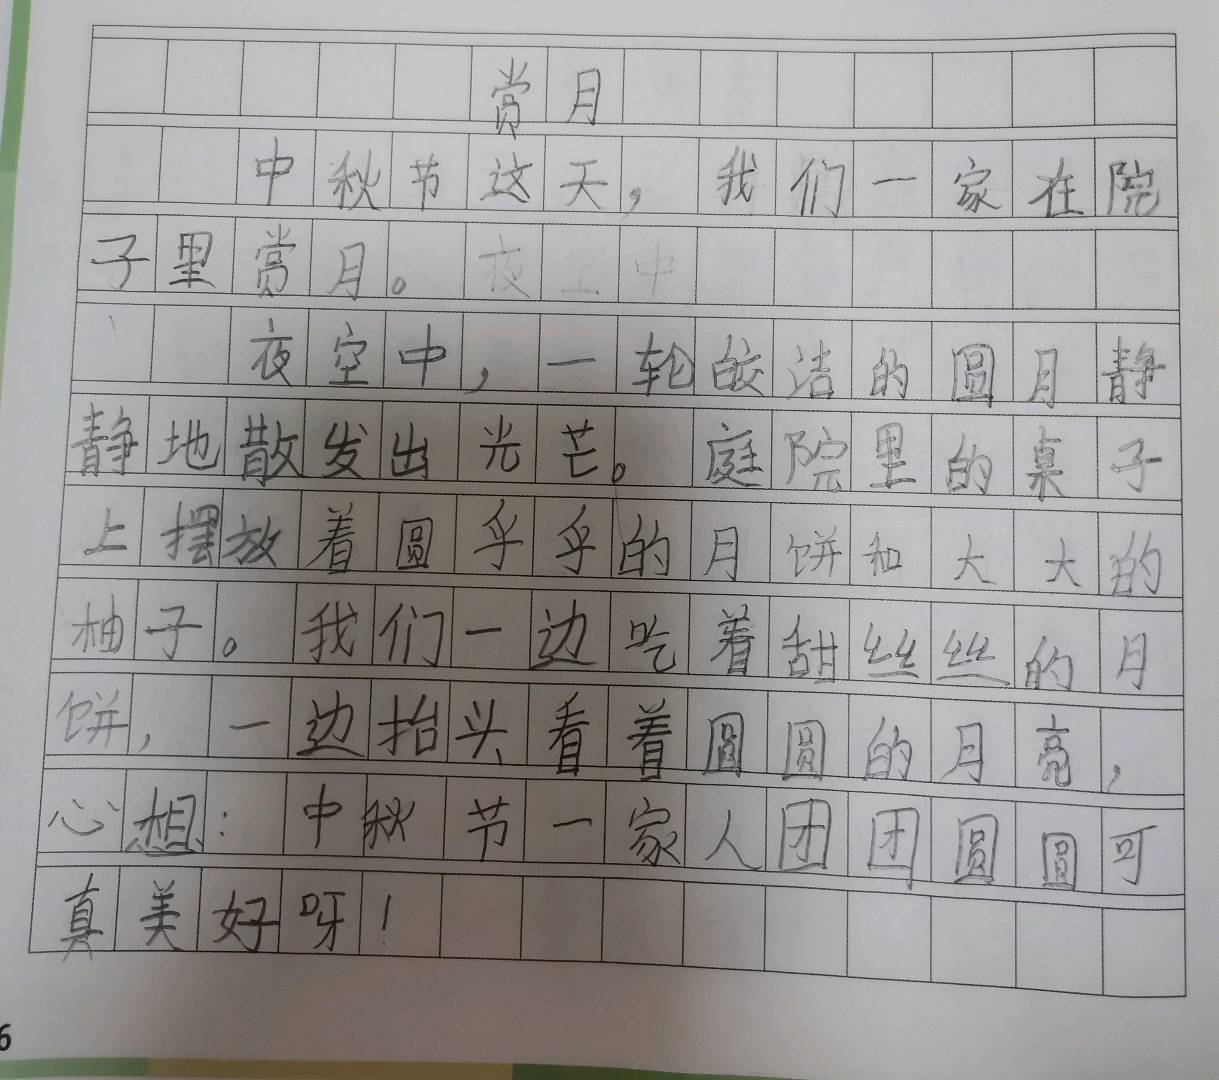 赏月
中秋节这天，我们一家在院
子里赏月。夜空中
夜空中，一轮皎洁的圆月静
静地散发出光芒。庭院里的桌子
上摆放着圆乎乎的月饼和大大的
柚子。我们一边吃着甜丝丝的月
饼，一边抬头看着圆圆的月亮，
心想：中秋节一家人团团圆圆可
真美好呀！
6